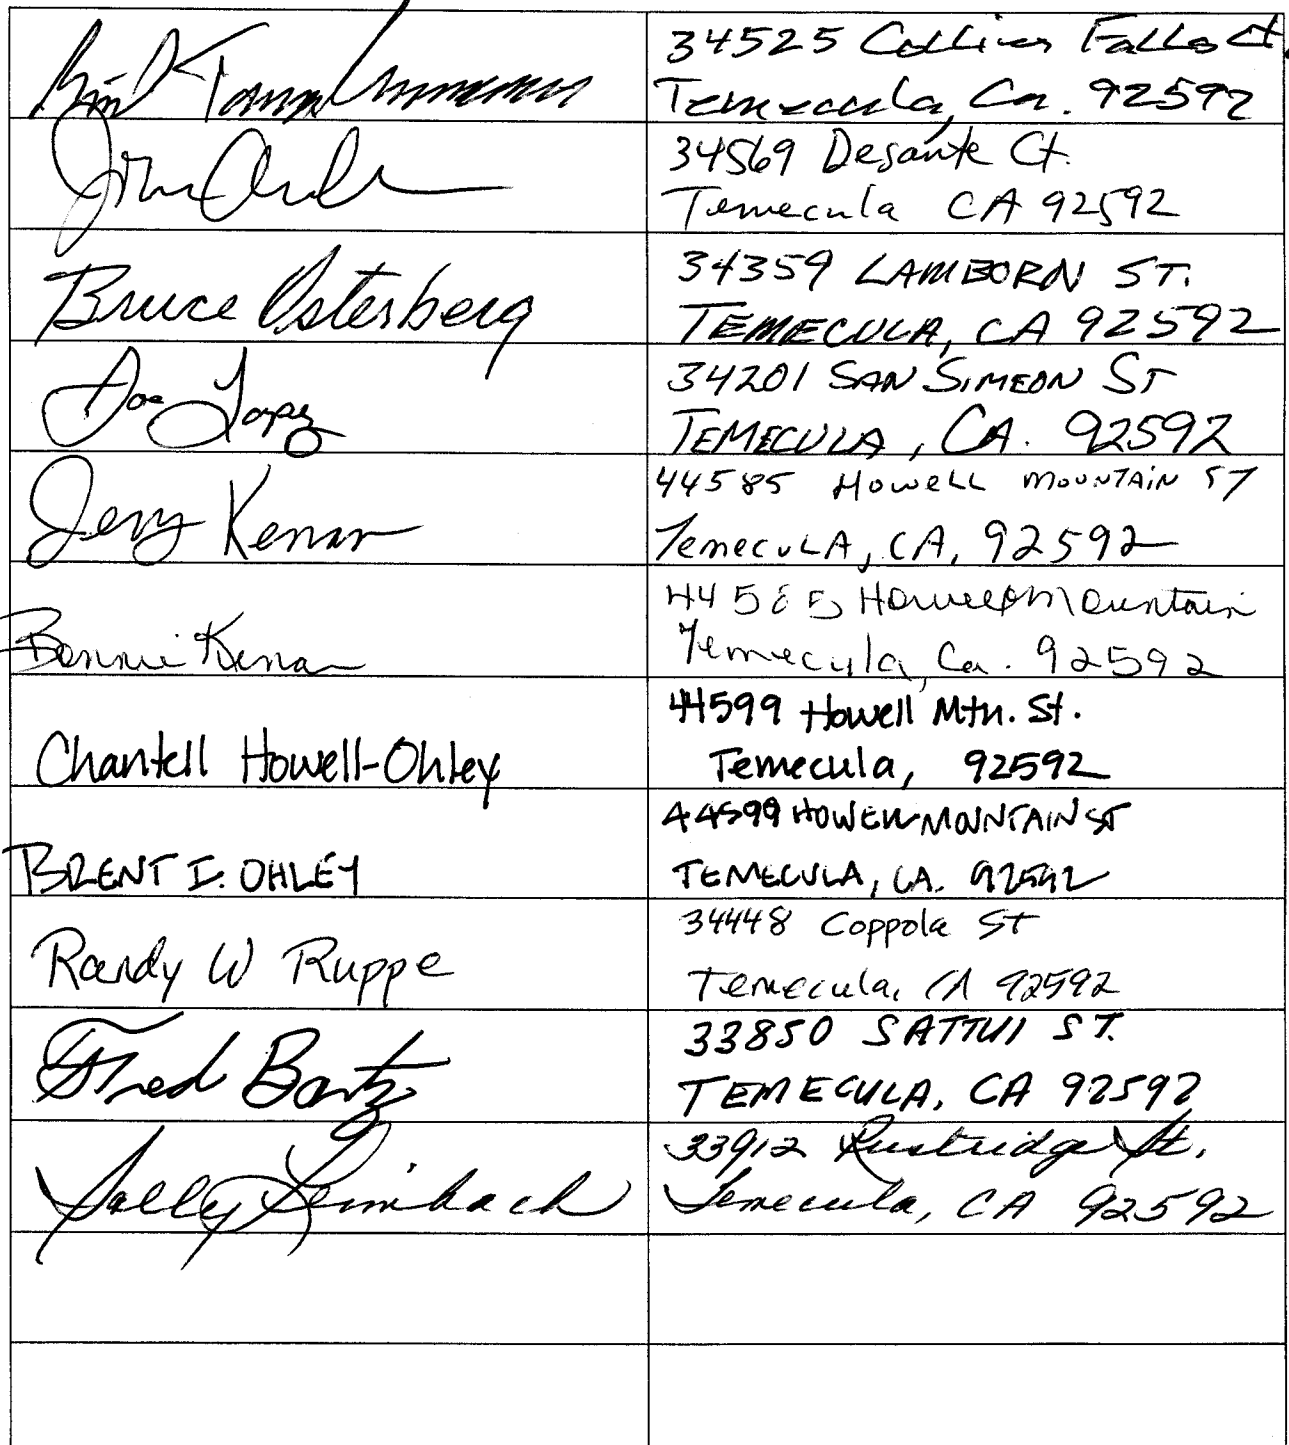 34525 Collins Falls Ct.
Temecula, Ca. 92592
34569 Desante Ct.
Temecula CA 92592
Bruce Osterberg
34359 LAMBORN ST.
TEMECULA, CA 92592
Joe Lopez
34201 SAN SIMEON ST
TEMECULA, CA. 92592
Jerry Kenan
44585 Howell MOUNTAIN ST
TemecuLA, CA, 92592
Bonnie Kenan
44585 Howell Mountain
Temecula, Ca. 92592
Chantell Howell-Ohley
44599 Howell Mtn. St.
Temecula, 92592
BRENT I. OHLEY
44599 HOWELL MOUNTAIN ST
TEMECULA, CA. 92592
Randy W Ruppe
34448 Coppola St
Temecula, CA 92592
Fred Bartz
33850 SATTUI ST.
TEMECULA, CA 92592
Sally Leimbach
33912 Rustridge St.
Temecula, CA 92592